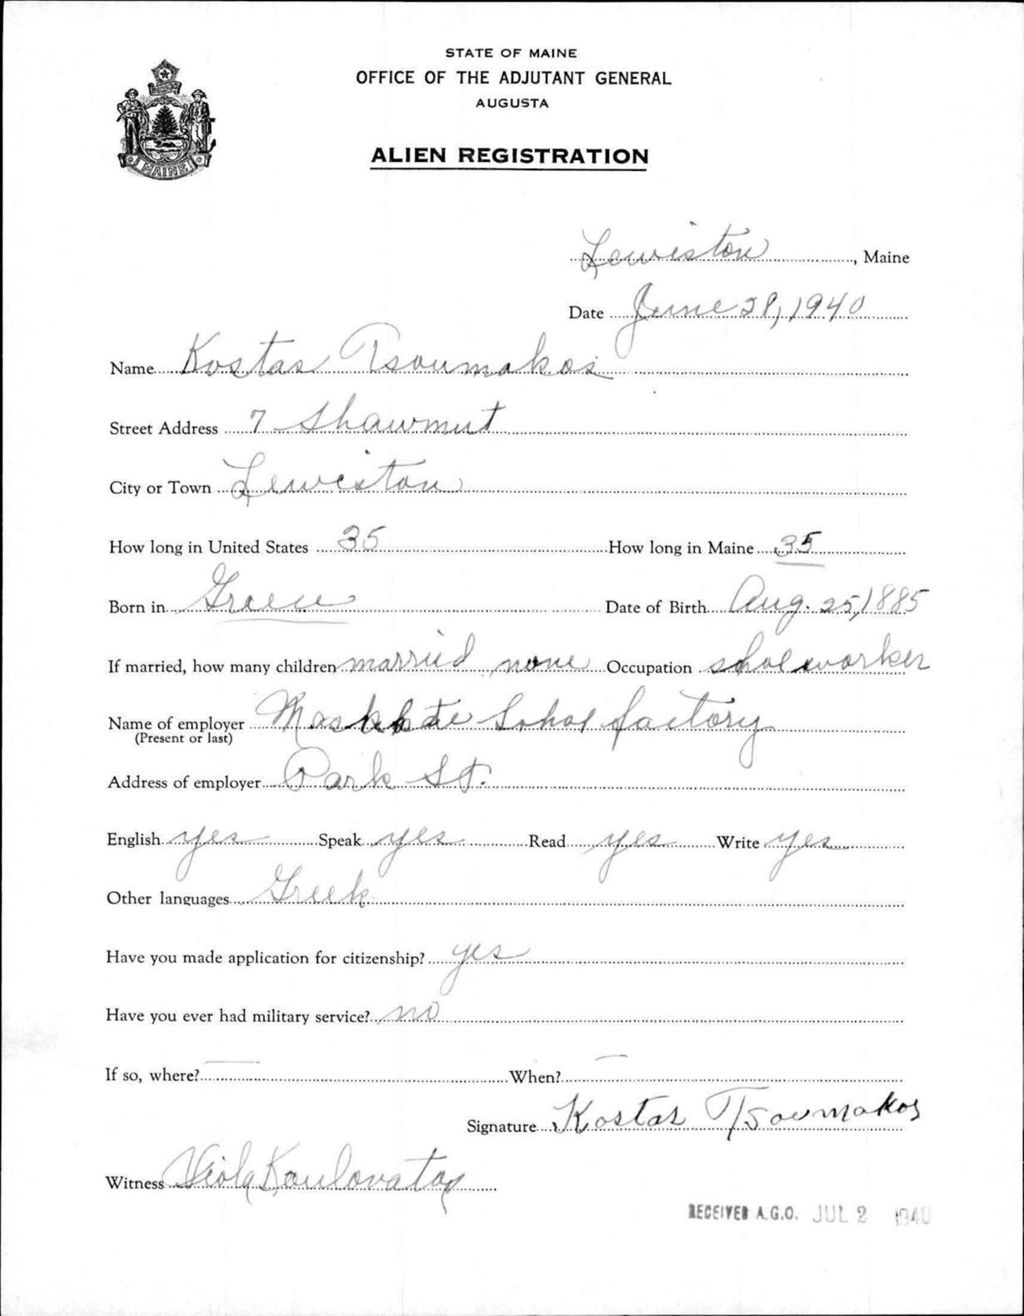 STATE OF MAINE
OFFICE OF THE ADJUTANT GENERAL
AUGUSTA
ALIEN REGISTRATION
MAINE
Lewiston, Maine
Date June 28, 1940
Name Kostas Tsoumakos
Street Address 7 Shawmut
City or Town Lewiston
How long in United States 35 How long in Maine 35
Born in Greece Date of Birth Aug. 25, 1885
If married, how many children married none Occupation shoeworker
Name of employer factory
(Present or last)
Address of employer Park St.
English yes Speak yes Read yes Write yes
Other languages Greek
Have you made application for citizenship? yes
Have you ever had military service? no
If so, where? — When? —
Signature Kostas Tsoumakos
Witness Viola
RECEIVED A.G.O. JUL 2 1940